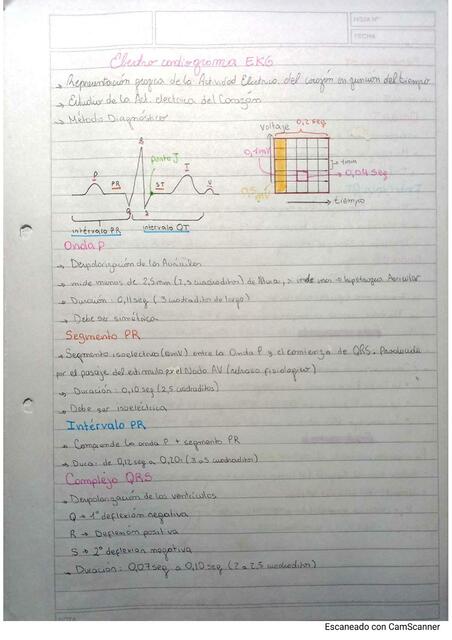 HOJA N°
FECHA
Electro cardiograma EKG
→ Representación grafica de la Actividad Electrica del corazón en funcion del tiempo
→ Estudio de la Act. electrica del Corazón
→ Método Diagnóstico
voltaje
0,2 seg
R
Punto J
0,1mV
1mm
P
PR
ST
T
U
0,04 seg
0,5 mV
Q
S
→ tiempo
intérvalo PR
intérvalo QT
Onda P
→ Despolarización de las Aurículas
→ mide menos de 2,5mm (2,5 cuadraditos) de Altura, > mide mas → hipertrofia Auricular
→ Duración: 0,11 seg (3 cuadraditos de largo)
→ Debe ser simétrica
Segmento PR
→ Segmento isoelectrico (0mV) entre la Onda P y el comienzo de QRS. Producido
por el pasaje del estimulo por el Nodo AV (retraso fisiologico)
→ Duración: 0,10 seg (2,5 cuadraditos)
→ Debe ser isoeléctrica
Intérvalo PR
→ Comprende la onda P + segmento PR
→ Dura: de 0,12 seg a 0,20s (3 a 5 cuadraditos)
Complejo QRS
→ Despolarización de los ventrículos
Q → 1° deflexión negativa
R → Deflexión positiva
S → 2° deflexión negativa
→ Duración: 0,07 seg a 0,10 seg (2 a 2,5 cuadraditos)
NOTA
Escaneado con CamScanner